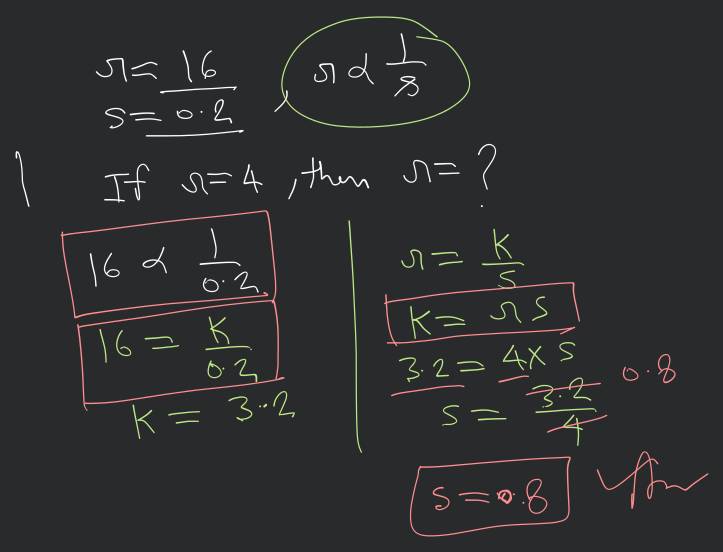 r = 16
s = 0.2 , r ∝ 1/s
If r = 4 , then r = ?
16 ∝ 1/0.2
16 = K/0.2
K = 3.2
r = K/s
K = r s
3.2 = 4 x s
s = 3.2/4 0.8
s = 0.8 Ans